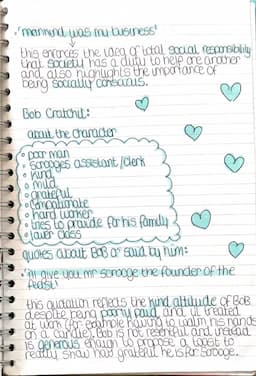 • 'mankind was my business'
this enforces the idea of total social responsibility
that society has a duty to help one another
and also highlights the importance of
being socially conscious.
Bob Cratchit:
about the character
• poor man
• scrooges assistant/clerk
• kind
• mild
• grateful
• compassionate
• hard worker
• tries to provide for his family
• lower class
quotes about BOB or said by him:
• 'i'll give you mr scrooge the founder of the
feast!'
this quotation reflects the kind attitude of Bob
despite being poorly paid, and ill treated
at work (for example having to warm his hands
on a candle). Bob is not resentful and instead
is generous enough to propose a toast to
really show how grateful he is for Scrooge.